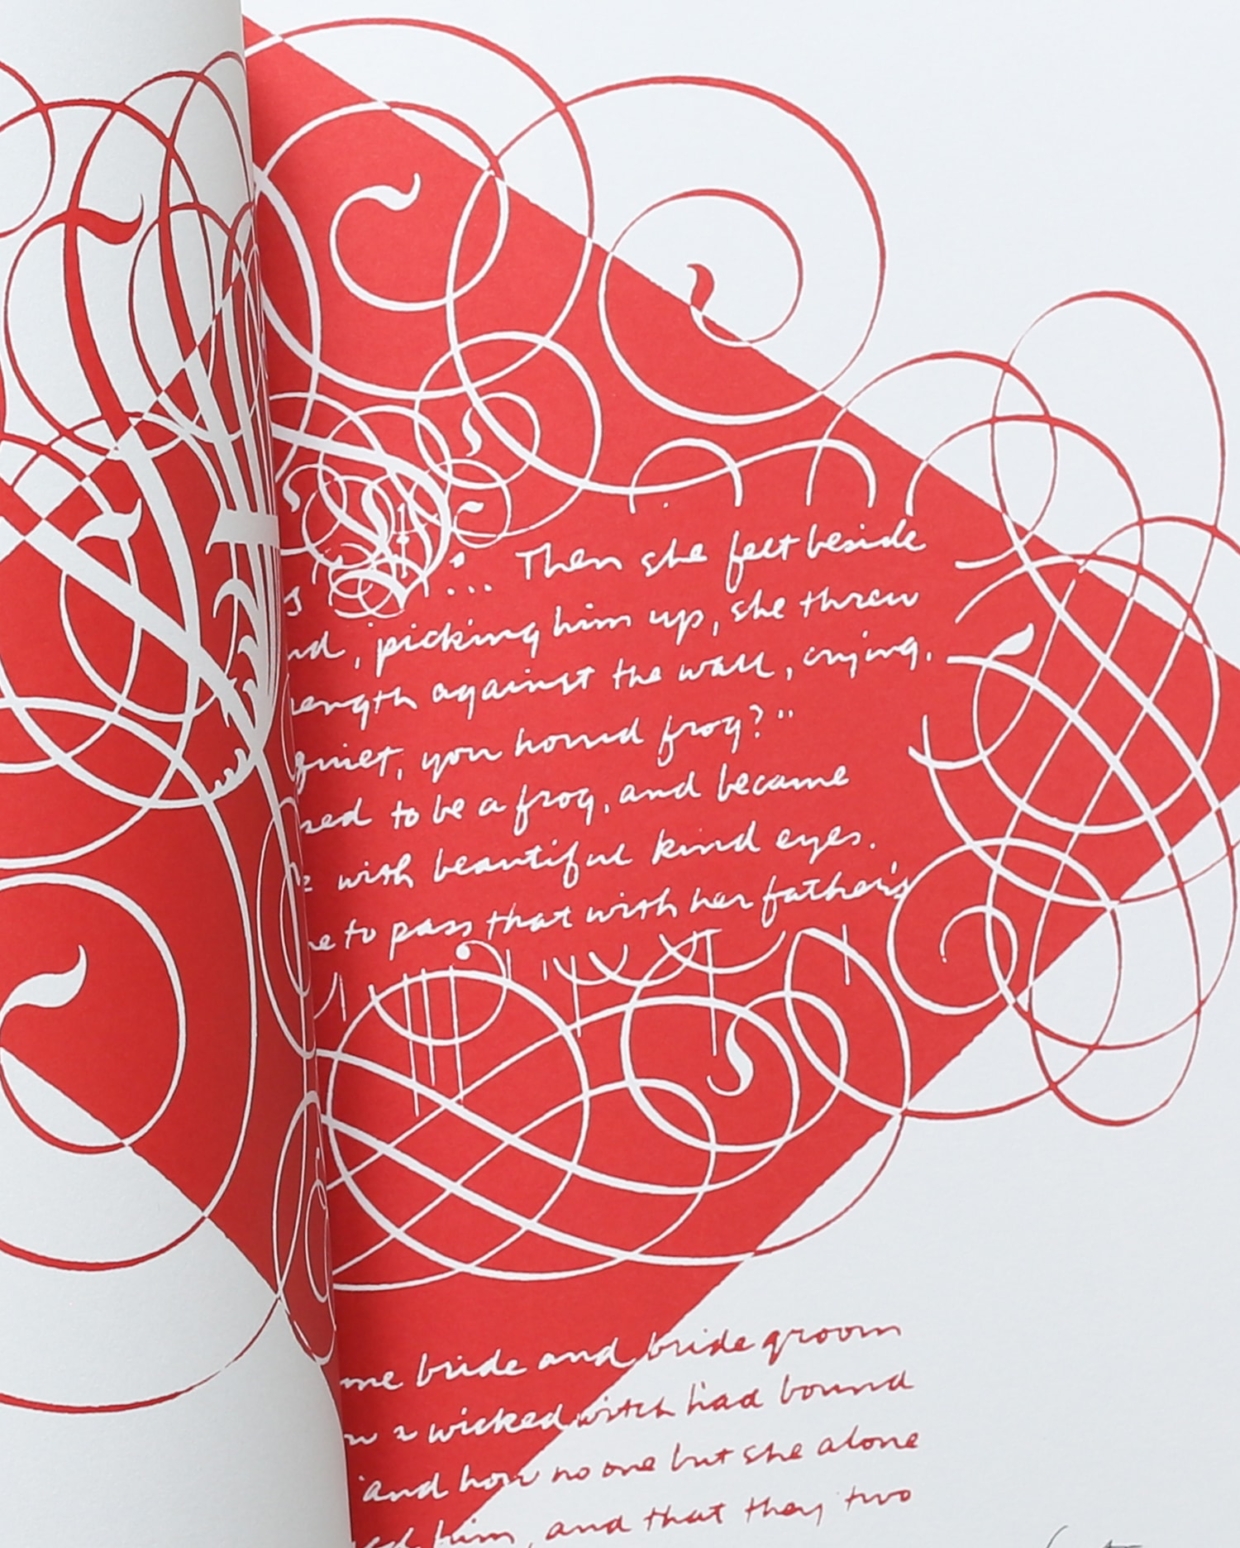 s ... Then she felt beside
nd, picking him up, she threw
rength against the wall, crying,
quiet, you horrid frog?"
sed to be a frog, and became
e with beautiful kind eyes.
me to pass that with her father's
me bride and bridegroom
w a wicked witch had bound
and how no one but she alone
ed him, and that they two